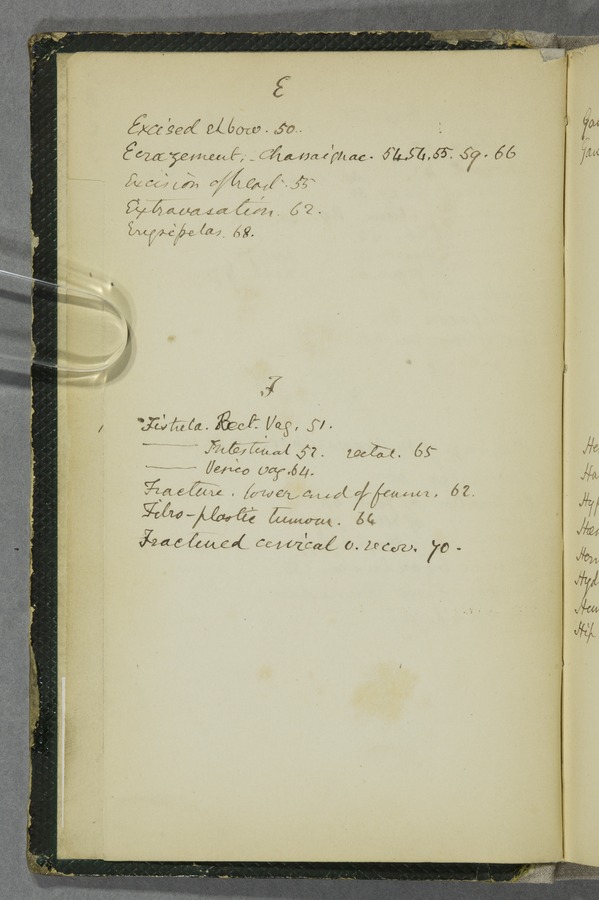 E
Excised elbow. 50.
Ecrazement, - Chassaignac. 54.54.55. 59. 66
Excision of head. 55
Extravasation. 62.
Erysipelas. 68.
F
Fistula. Rect. Vag. 51.
—— Intestinal 52. rectal. 65
—— Vesico vag. 64.
Fracture. lower end of femur. 62.
Fibro-plastic tumour. 64
Fractured cervical v. recov. 70.
Hyd
Hip